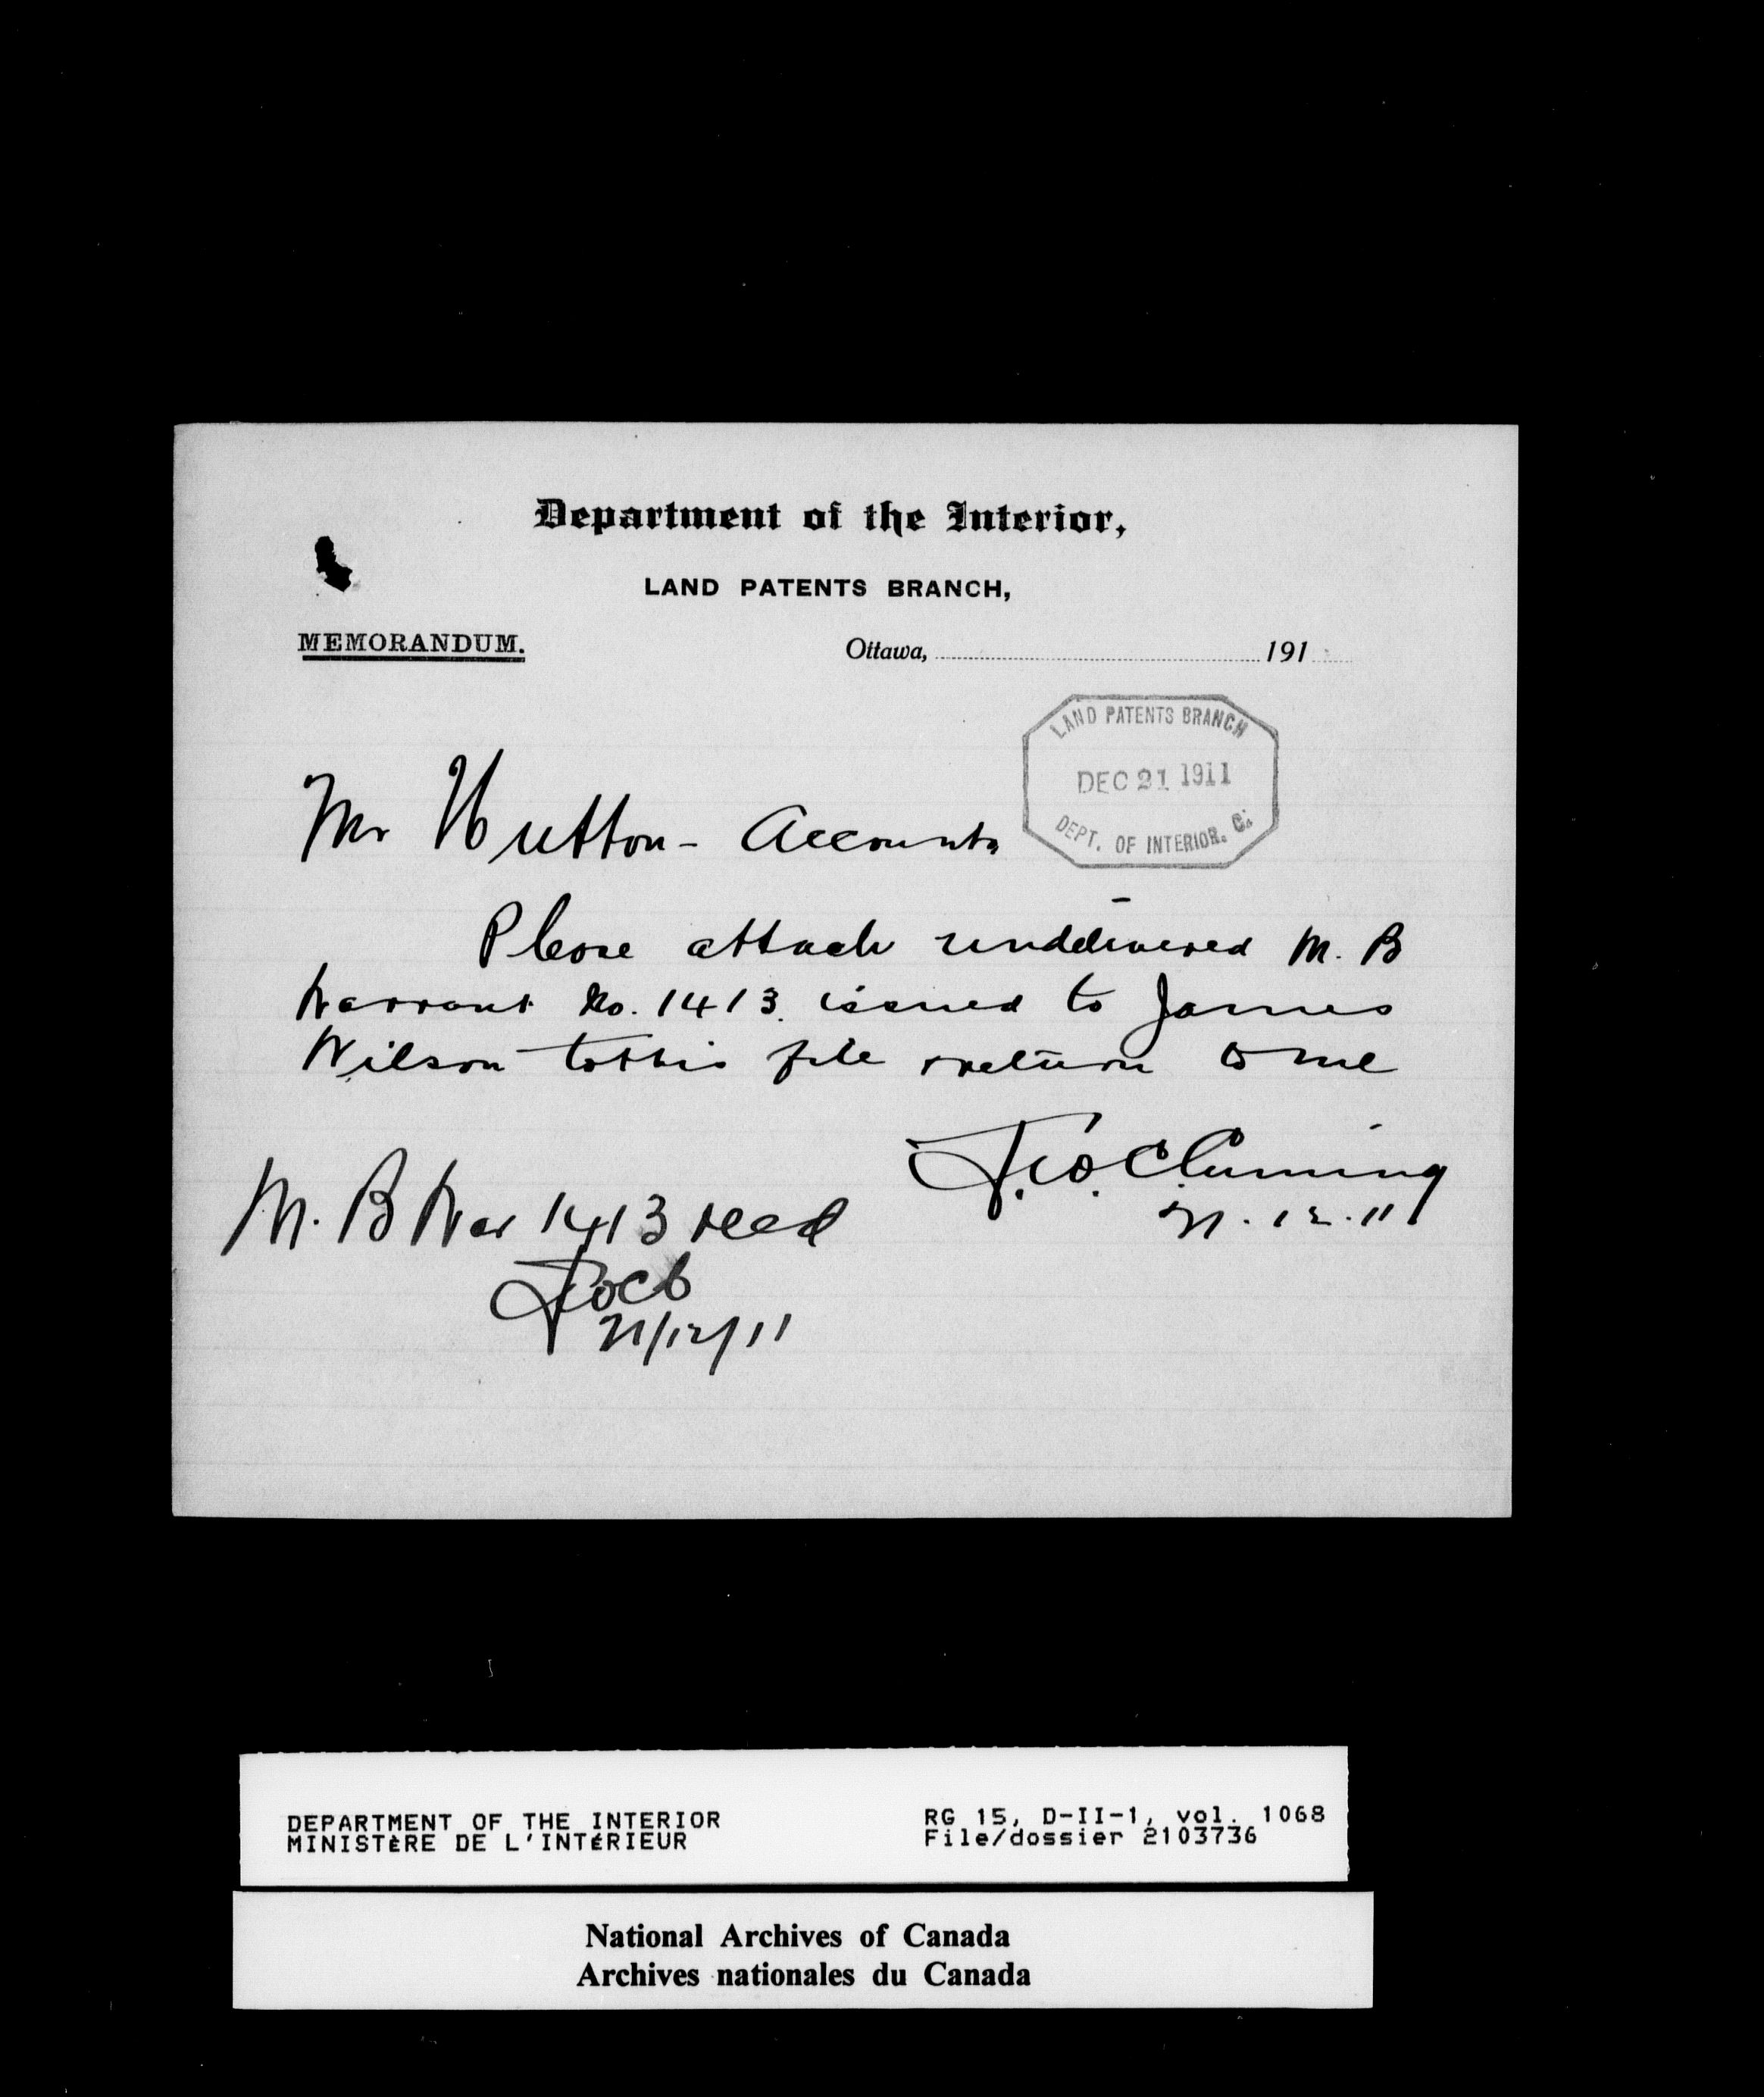 Department of the Interior,
LAND PATENTS BRANCH,
MEMORANDUM.
Ottawa, 191
LAND PATENTS BRANCH
DEC 21 1911
DEPT. OF INTERIOR. C.
Mr Hutton - Accounts
Please attach undelivered M. B
Warrant No. 1413 issued to James
Wilson to this file & return to me
Cuming
21.12.11
M. B War 1413 recd
21/12/11
DEPARTMENT OF THE INTERIOR
MINISTÈRE DE L'INTÉRIEUR
RG 15, D-II-1, vol. 1068
File/dossier 2103736
National Archives of Canada
Archives nationales du Canada